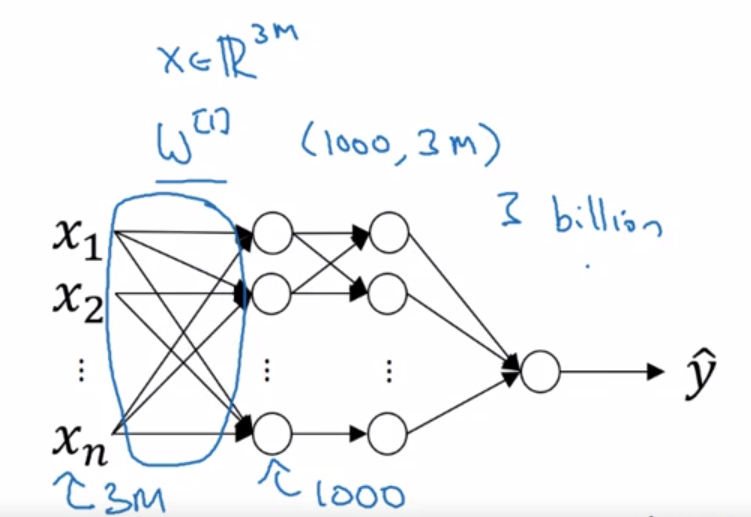 x∈ℝ^3M
W^[1] (1000, 3M)
3 billion
x_1
x_2
⋮ ⋮ ⋮
ŷ
x_n
3M
1000